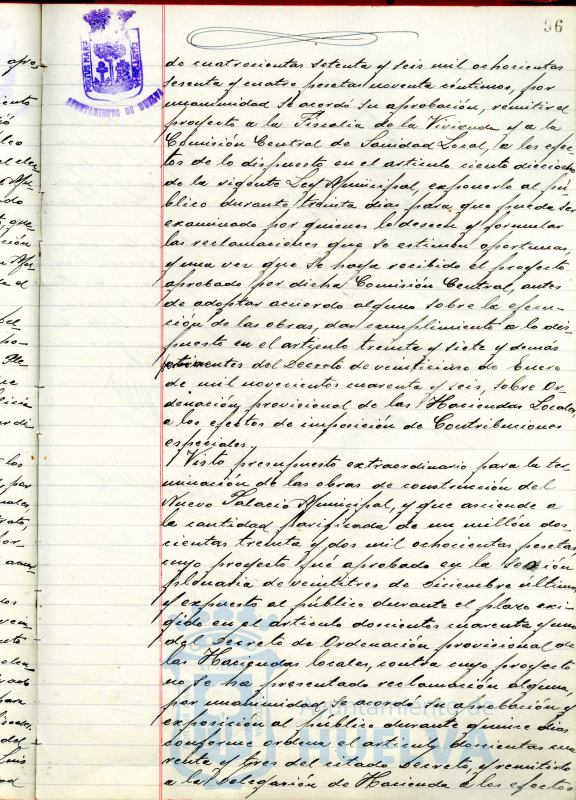 96
PORTUS MARIS
CUSTODIA
AYUNTAMIENTO DE HUELVA
de cuatrocientas setenta y seis mil ochocientas
sesenta y cuatro pesetas noventa céntimos, por
unanimidad se acordó su aprobación, remitir el
proyecto a la Fiscalía de la Vivienda y a la
Comisión Central de Sanidad Local, a los efec-
tos de lo dispuesto en el artículo ciento dieciocho
de la vigente Ley Municipal, exponerlo al pú-
blico durante treinta días para que pueda ser
examinado por quienes lo deseen y formular
las reclamaciones que se estimen oportunas,
y una vez que se haya recibido el proyecto
aprobado por dicha Comisión Central, antes
de adoptar acuerdo alguno sobre la ejecu-
ción de las obras, dar cumplimiento a lo dis-
puesto en el artículo treinta y siete y demás
pertinentes del Decreto de veinticinco de Enero
de mil novecientos cuarenta y seis, sobre Or-
denación provisional de las Haciendas Locales,
a los efectos de imposición de Contribuciones
especiales.
Visto presupuesto extraordinario para la ter-
minación de las obras de construcción del
Nuevo Palacio Municipal, y que asciende a
la cantidad de un millón dos-
cientas treinta y dos mil ochocientas pesetas
cuyo proyecto fué aprobado en la sesión
plenaria de veintitres de Diciembre último
y expuesto al público durante el plazo exi-
gido en el artículo doscientos cuarenta y uno
del Decreto de Ordenación provisional de
las Haciendas locales, contra cuyo proyecto
no se ha presentado reclamación alguna,
por unanimidad se acordó su aprobación y
exposición al público durante quince días
conforme ordena el artículo doscientos cua-
renta y tres del citado Decreto, y remitirlo
a la Delegación de Hacienda a los efectos
Ayuntamiento de
HUELVA